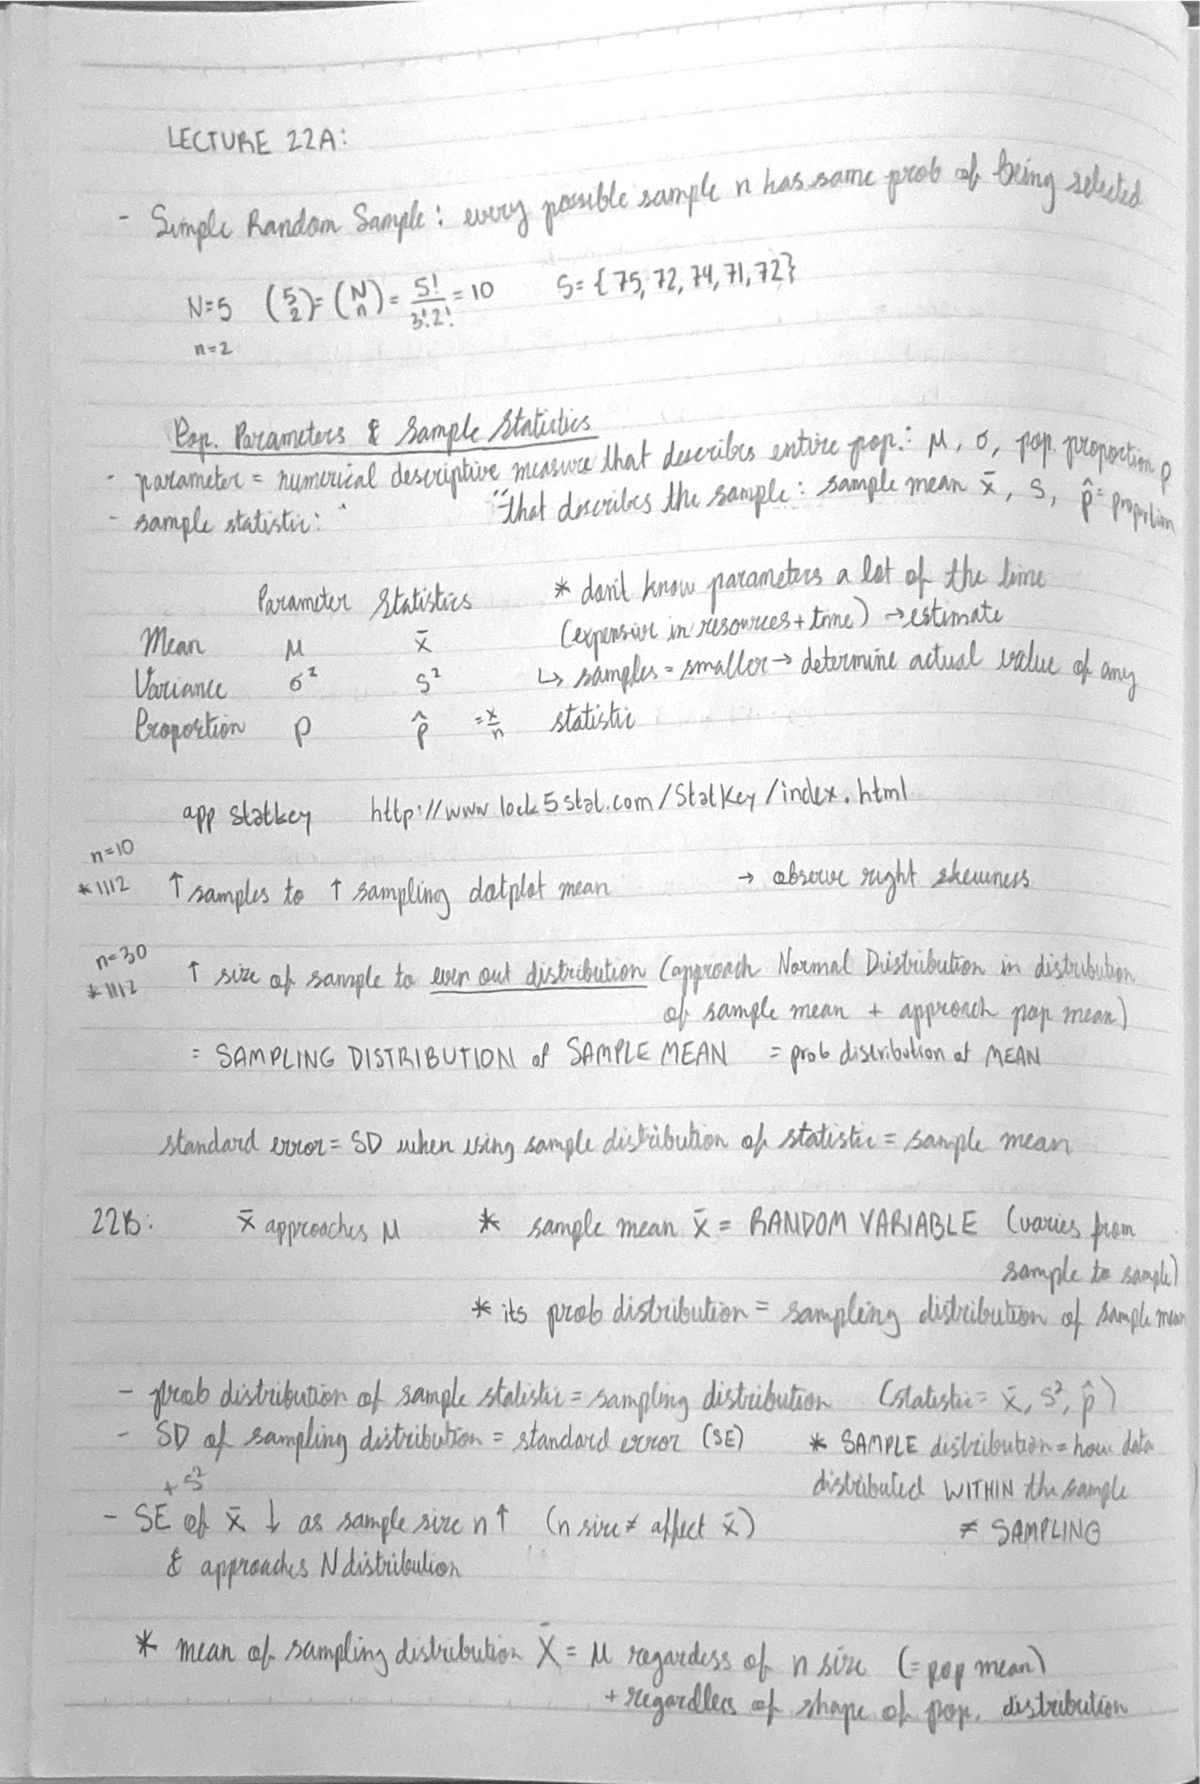 LECTURE 22A:
- Simple Random Sample: every possible sample n has same prob of being selected
N=5 (5 2) = (N n) = 5!/3!2! = 10 S= {75, 72, 74, 71, 72}
n=2
Pop. Parameters & Sample Statistics
- parameter = numerical descriptive measure that describes entire pop.: μ, σ, pop. proportion p
- sample statistic: " " that describes the sample: sample mean x̄, S, p̂ = proportion
Parameter Statistics * don't know parameters a lot of the time
Mean μ x̄ (expensive in resources + time) → estimate
Variance σ² S² ↳ samples = smaller → determine actual value of any
Proportion p p̂ = x/n statistic
app statkey http://www.lock5stat.com/StatKey/index.html
n=10
*1112 ↑ samples to ↑ sampling dotplot mean → observe right skewness
n=30
*1112 ↑ size of sample to even out distribution (approach Normal Distribution in distribution
of sample mean + approach pop mean)
= SAMPLING DISTRIBUTION of SAMPLE MEAN = prob distribution of MEAN
standard error = SD when using sample distribution of statistic = sample mean
22B: x̄ approaches μ * sample mean x̄ = RANDOM VARIABLE (varies from
sample to sample)
* its prob distribution = sampling distribution of sample mean
- prob distribution of sample statistic = sampling distribution (statistic = x̄, S², p̂)
- SD of sampling distribution = standard error (SE) * SAMPLE distribution = how data
+ S² distributed WITHIN the sample
- SE of x̄ ↓ as sample size n ↑ (n size ≠ affect x̄) ≠ SAMPLING
& approaches N distribution
* mean of sampling distribution X̄ = μ regardess of n size (= pop mean)
+ regardless of shape of pop. distribution